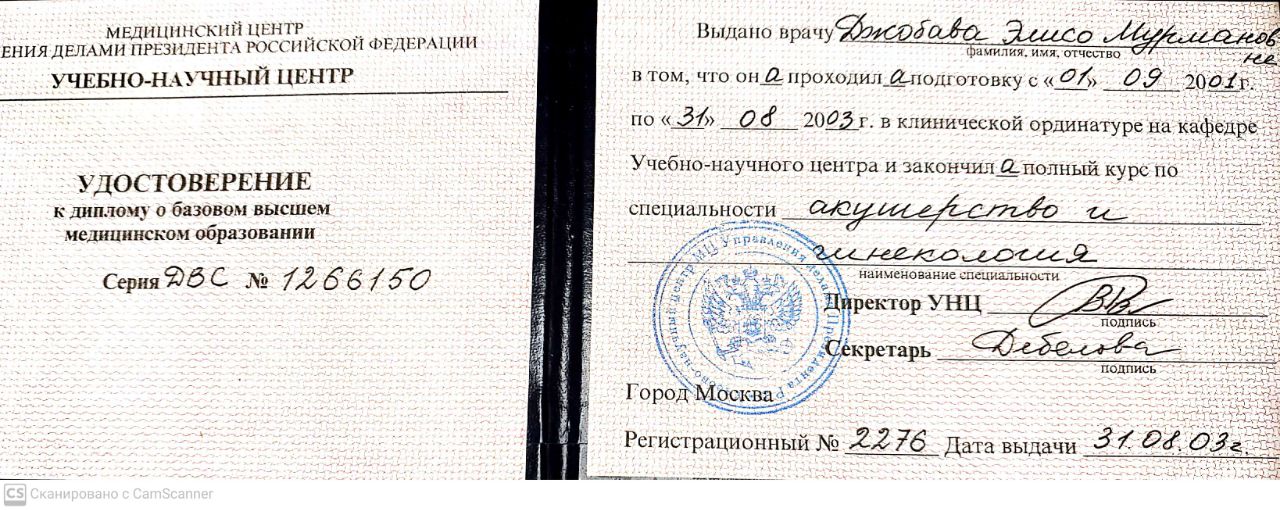 МЕДИЦИНСКИЙ ЦЕНТР
ЕНИЯ ДЕЛАМИ ПРЕЗИДЕНТА РОССИЙСКОЙ ФЕДЕРАЦИИ
УЧЕБНО-НАУЧНЫЙ ЦЕНТР
УДОСТОВЕРЕНИЕ
к диплому о базовом высшем
медицинском образовании
Серия ДВС № 1266150
Выдано врачу Джобава Элисо Мурмановне
фамилия, имя, отчество
в том, что он а проходил а подготовку с «01» 09 2001 г.
по «31» 08 2003 г. в клинической ординатуре на кафедре
Учебно-научного центра и закончил а полный курс по
специальности акушерство и
гинекология
наименование специальности
Директор УНЦ
подпись
Секретарь Дебелова
подпись
Город Москва
Регистрационный № 2276 Дата выдачи 31.08.03г.
CS Сканировано с CamScanner